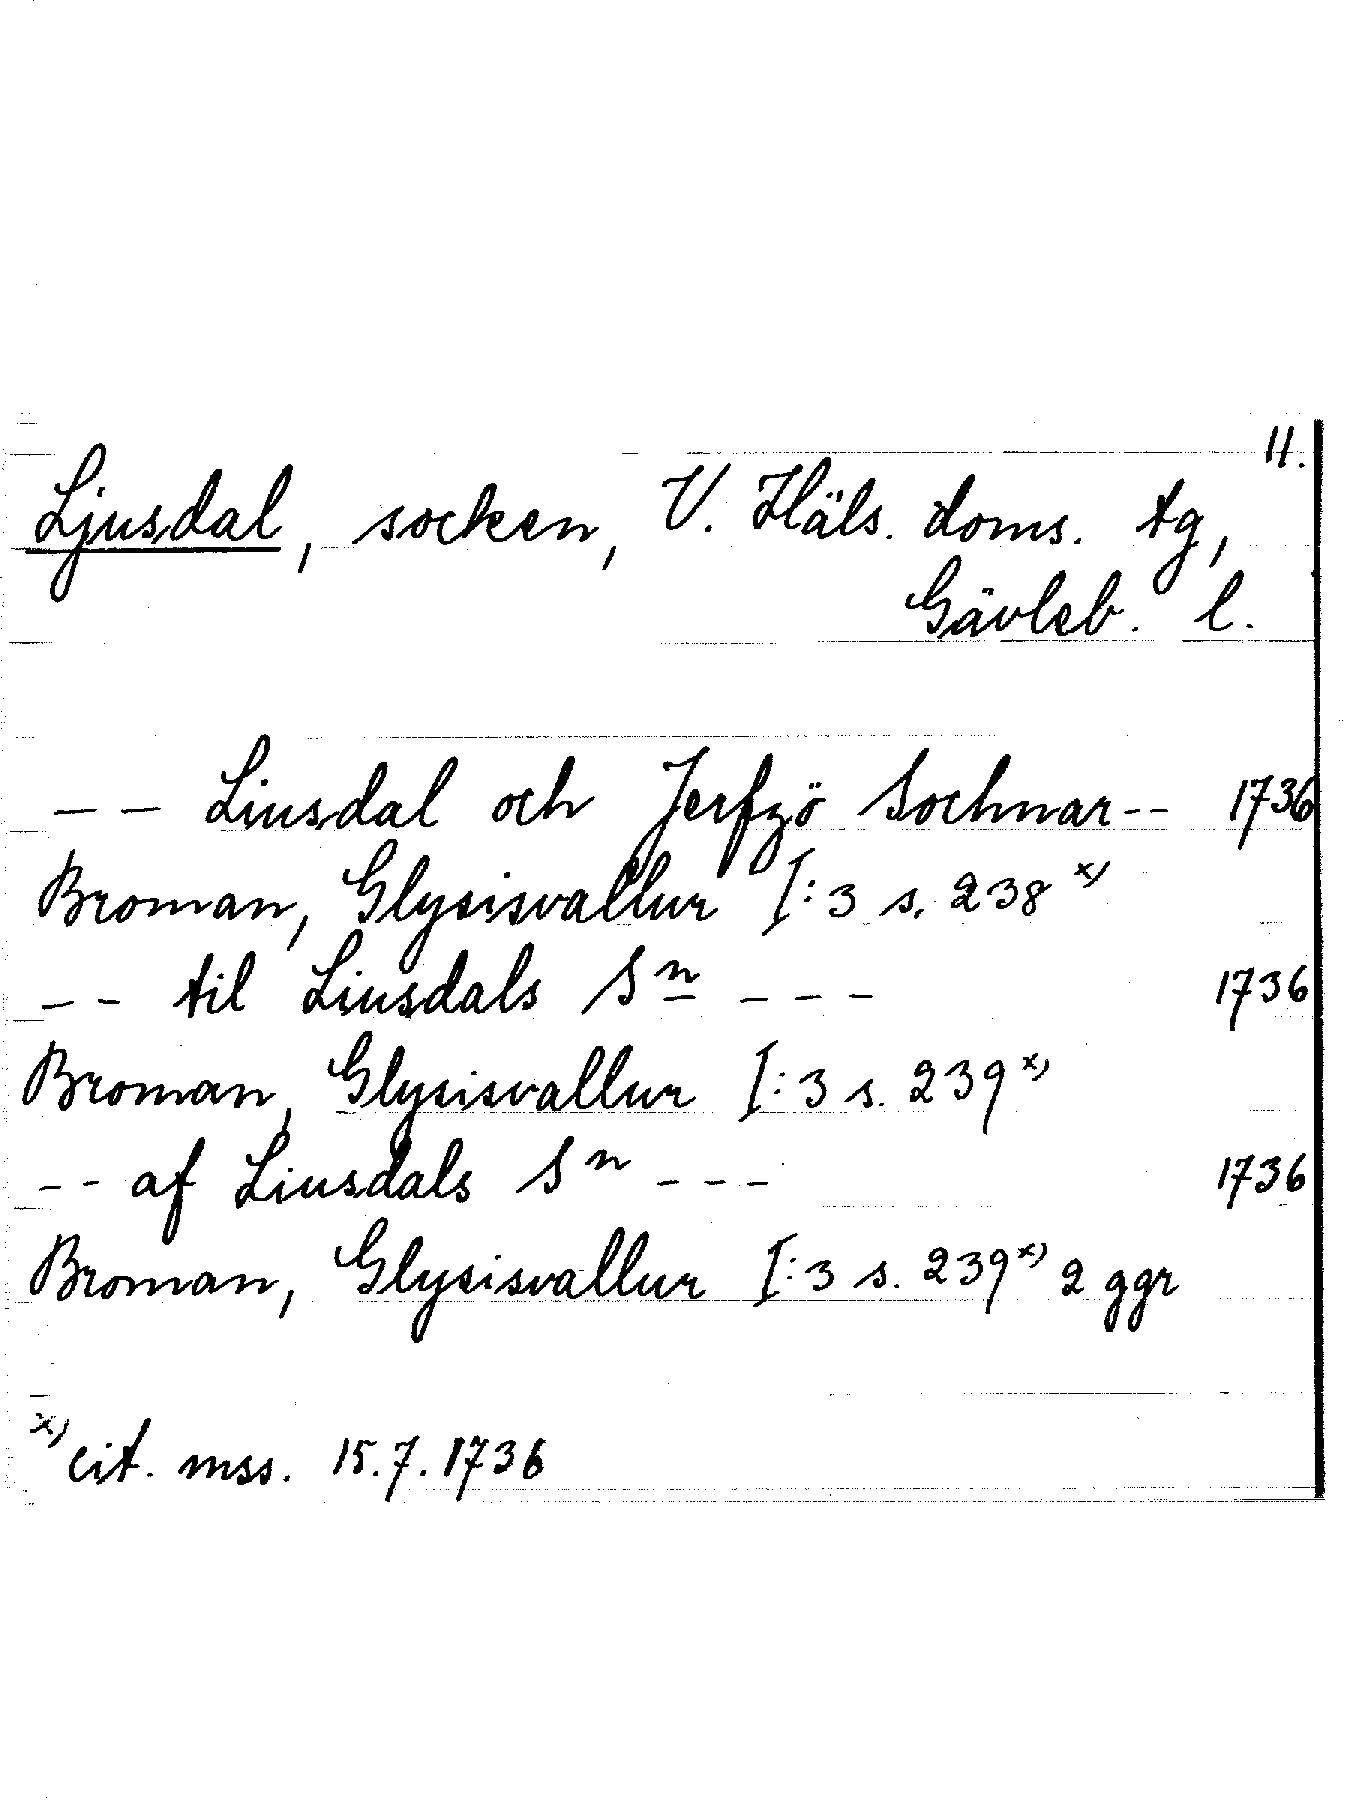 11.
Ljusdal, socken, V. Häls. doms. tg,
Gävleb. l.
-- Liusdal och Jerfzö Sochnar-- 1736
Broman, Glysisvallur I:3 s. 238 x)
-- til Liusdals Sn --- 1736
Broman, Glysisvallur I:3 s. 239 x)
-- af Liusdals Sn --- 1736
Broman, Glysisvallur I:3 s. 239 x) 2 ggr
x) cit. mss. 15.7.1736